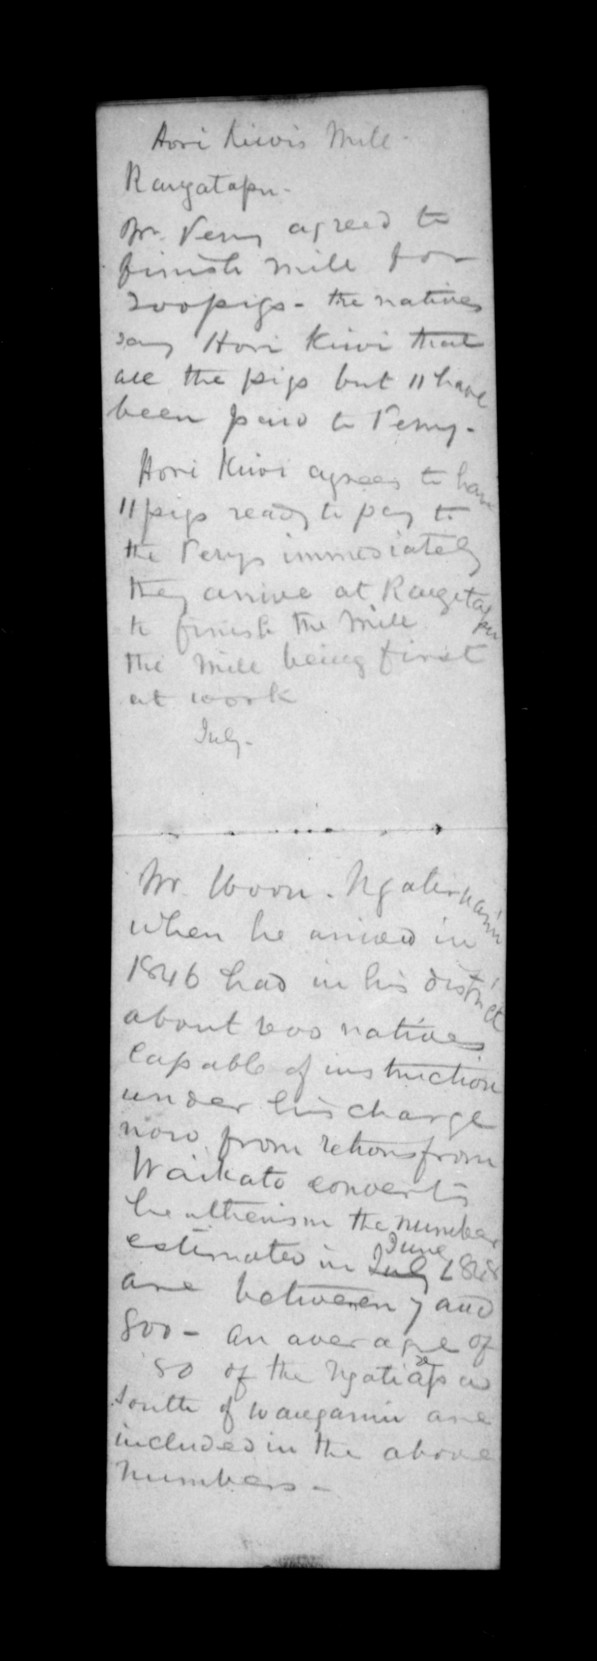 Hori Kiwis Mill -
Rangatapu -
Mr. Perry agreed to
finish mill for
200 pigs - the natives
say Hori Kiwi that
all the pigs but 11 have
been paid to Perry -
Hori Kiwi agrees to have
11 pigs ready to pay to
the Perrys immediately
they arrive at Rangatapu
to finish the Mill
the Mill being first
at work
July -
Mr. Woon. Ngatiruanui
when he arrived in
1846 had in his district
about 200 natives
capable of instruction
under his charge
now from from
Waikato converts
heathenism the number
estimated in July June 1848
are between 7 and
800 - an average of
80 of the Ngatiapa
south of Wanganui are
included in the above
numbers -